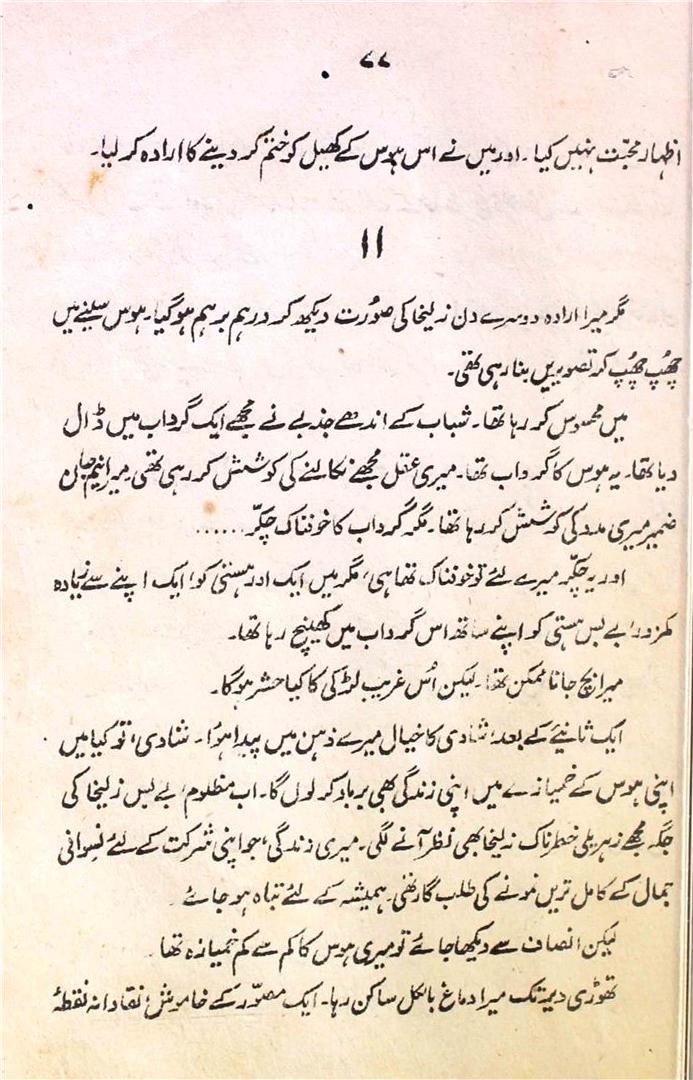 ۷۷
اظہار محبّت نہیں کیا۔ اور میں نے اس ہوس کے کھیل کو ختم کر دینے کا ارادہ کر لیا۔
۱۱
مگر میرا ارادہ دوسرے دن زلیخا کی صوُرت دیکھ کر درہم برہم ہو گیا۔ ہوس سینے میں
چھُپ چھُپ کر تصویریں بنا رہی تھی۔
میں محسوس کر رہا تھا۔ شباب کے اندھے جذبے نے مجھے ایک گرداب میں ڈال
دیا تھا۔ یہ ہوس کا گرداب تھا۔ میری عقل مجھے نکالنے کی کوشش کر رہی تھی۔ میرا نیم جان
ضمیر میری مدد کی کوشش کر رہا تھا۔ مگر گرداب کا خوفناک چکّر......
اور یہ چکّر میرے لئے تو خوفناک تھا ہی، مگر میں ایک اور ہستی کو، ایک اپنے سے زیادہ
کمزور، بے بس ہستی کو اپنے ساتھ اس گرداب میں کھینچ رہا تھا۔
میرا بچ جانا ممکن تھا۔ لیکن اُس غریب لڑکی کا کیا حشر ہوگا۔
ایک ثانیئے کے بعد، شادی کا خیال میرے ذہن میں پیدا ہوُا۔ شادی، تو کیا میں
اپنی ہوس کے خمیازے میں اپنی زندگی بھی برباد کر لوں گا۔ اب مظلوم، بے بس زلیخا کی
جگہ مجھے زہریلی خطرناک زلیخا بھی نظر آنے لگی۔ میری زندگی، جو اپنی شرکت کے لئے نسوانی
جمال کے کامل ترین نمونے کی طلب گار تھی۔ ہمیشہ کے لئے تباہ ہو جائے۔
لیکن انصاف سے دیکھا جائے تو میری ہوس کا کم سے کم خمیازہ تھا۔
تھوڑی دیر تک میرا دماغ بالکل ساکن رہا۔ ایک مصوّر کے خاموش، نقادانہ نقطۂ